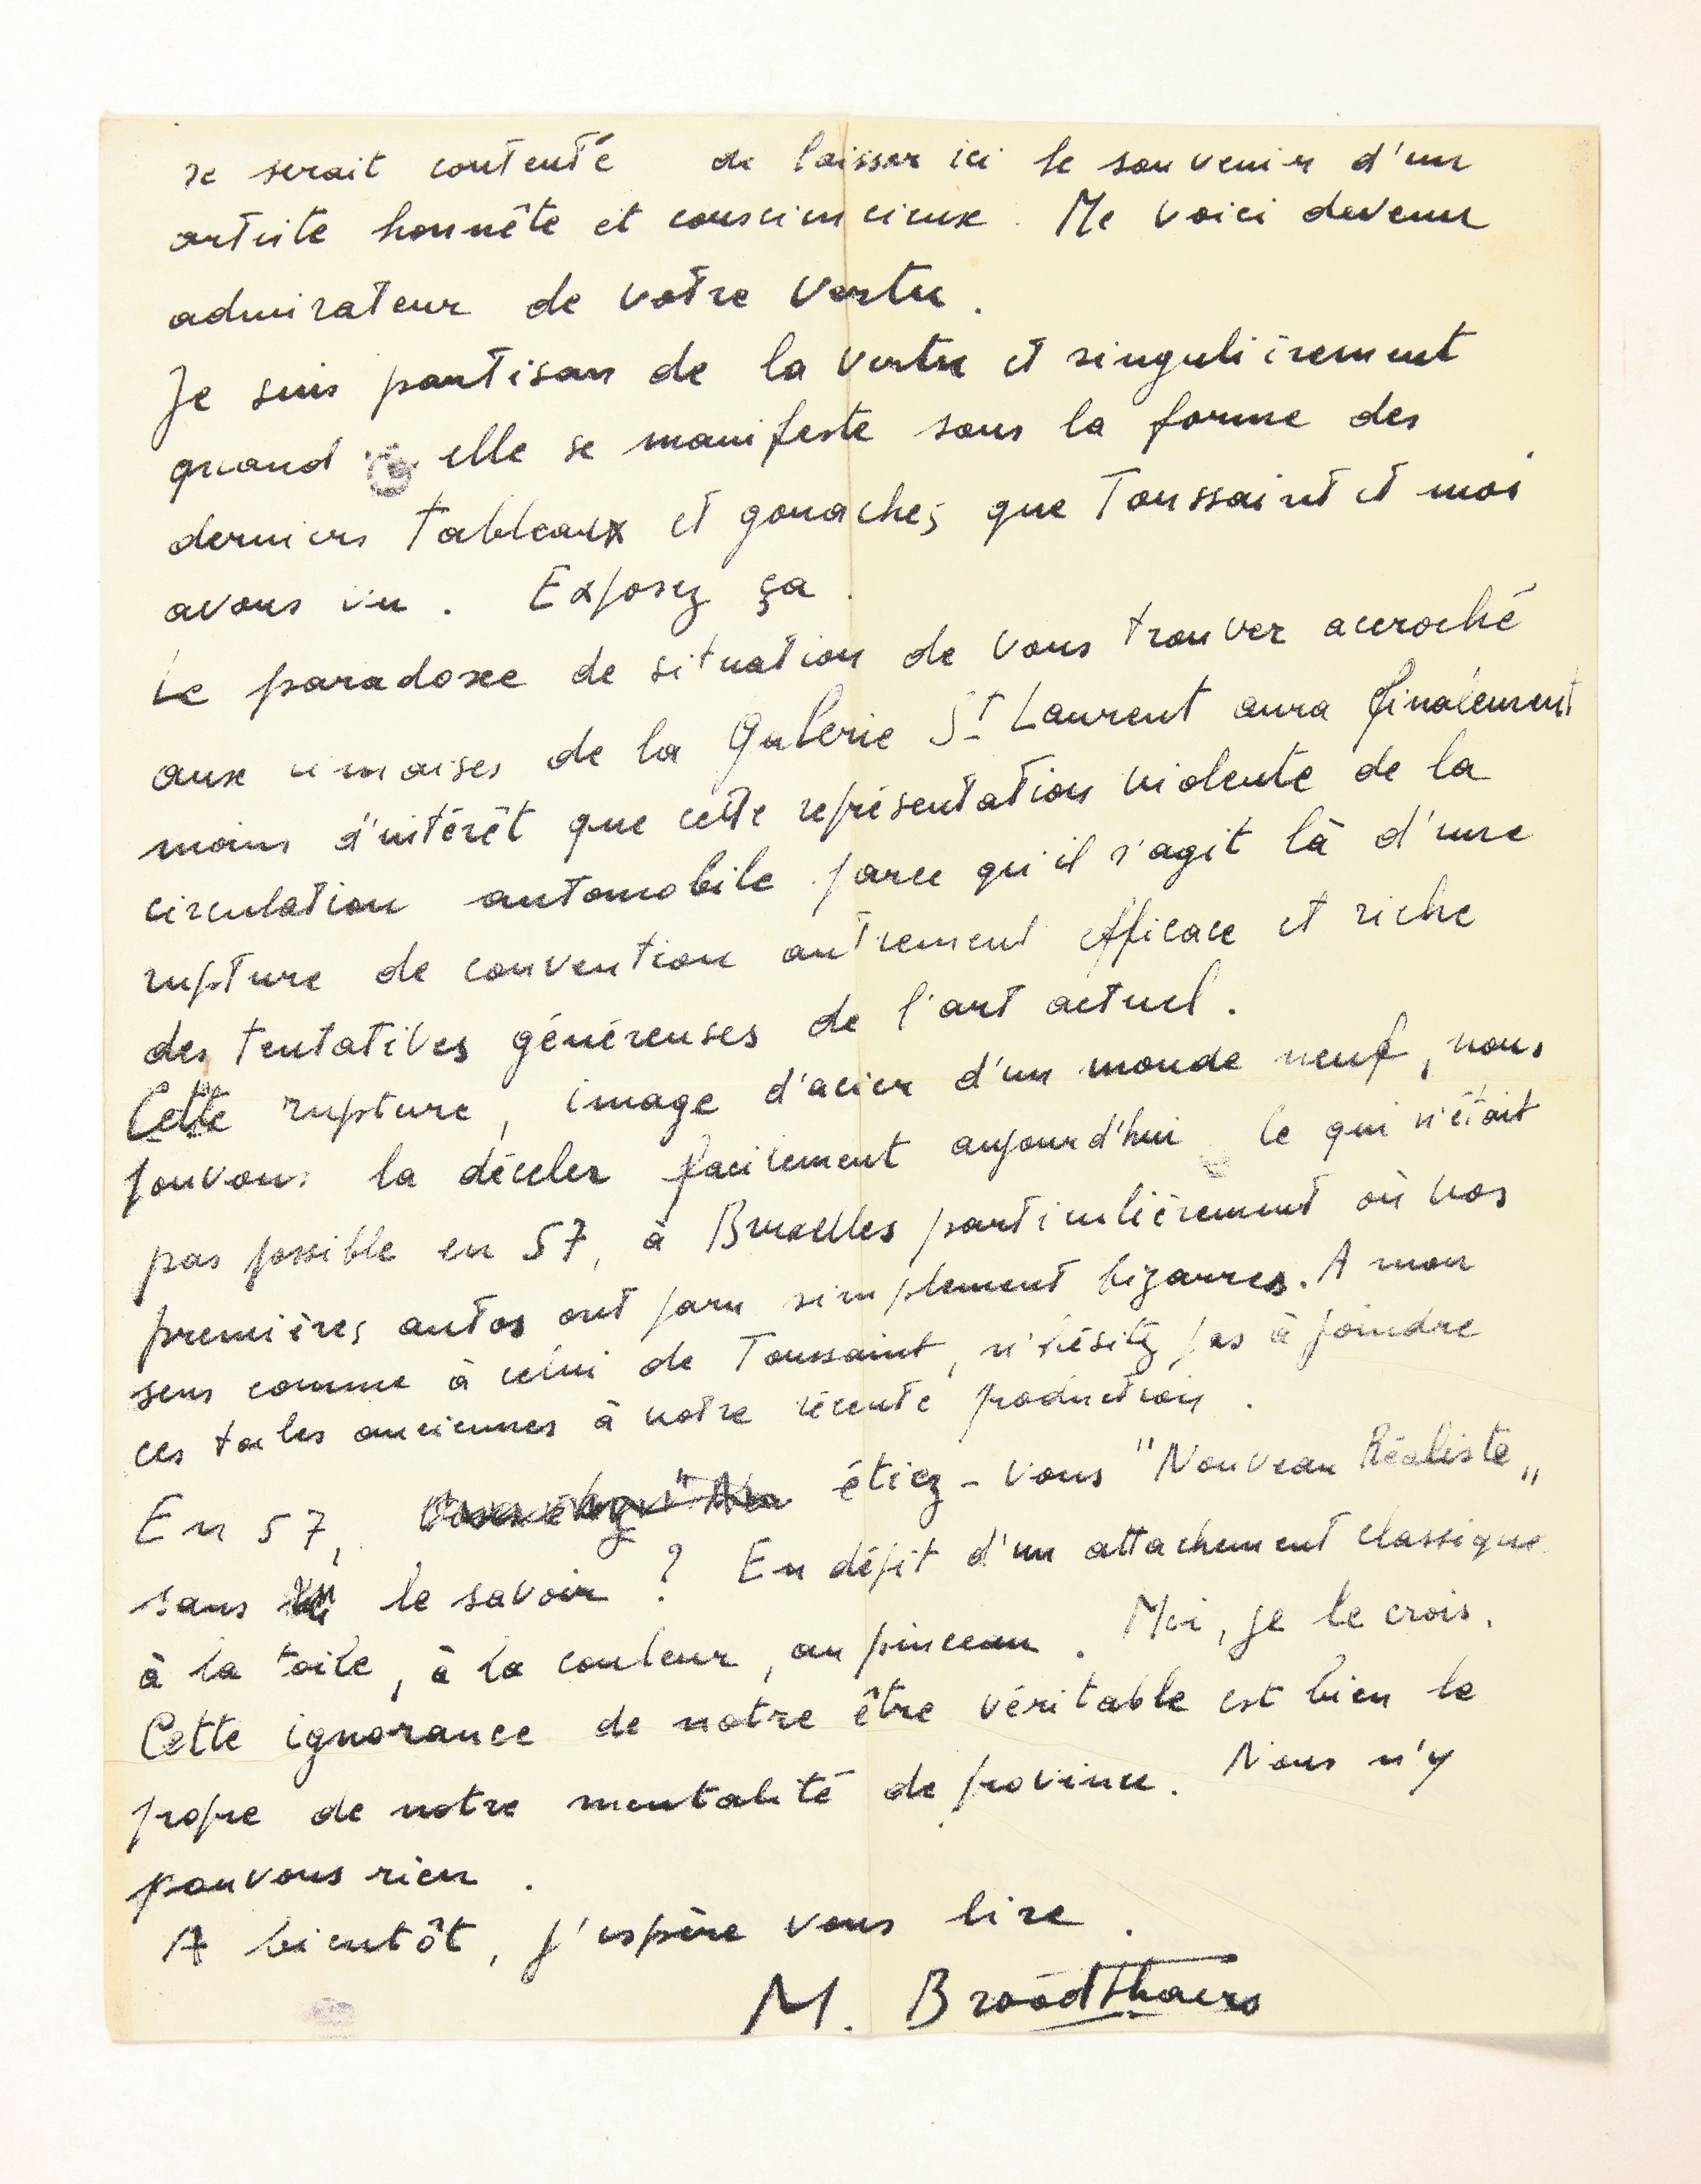 se serait contenté de laisser ici le souvenir d'un
artiste honnête et consciencieux. Me voici devenu
admirateur de votre vertu.
Je suis partisan de la vertu et singulièrement
quand elle se manifeste sous la forme des
derniers tableaux et gouaches que Toussaint et moi
avons vu. Exposez ça.
Le paradoxe de situation de vous trouver accroché
aux cimaises de la Galerie St Laurent aura finalement
moins d'intérêt que cette représentation violente de la
circulation automobile parce qu'il s'agit là d'une
rupture de convention autrement efficace et riche
des tentatives généreuses de l'art actuel.
Cette rupture, image d'acier d'un monde neuf, nous
pouvons la déceler facilement aujourd'hui ce qui n'était
pas possible en 57, à Bruxelles particulièrement où vos
premières autos ont paru simplement bizarres. A mon
sens comme à celui de Toussaint, n'hésitez pas à joindre
ces toiles anciennes à votre récente production.
En 57, étiez-vous "Nouveau Réaliste"
sans le savoir ? En dépit d'un attachement classique
à la toile, à la couleur, au pinceau. Moi, je le crois.
Cette ignorance de notre être véritable est bien le
propre de notre mentalité de province. Nous n'y
pouvons rien.
A bientôt, j'espère vous lire.
M. Broodthaers